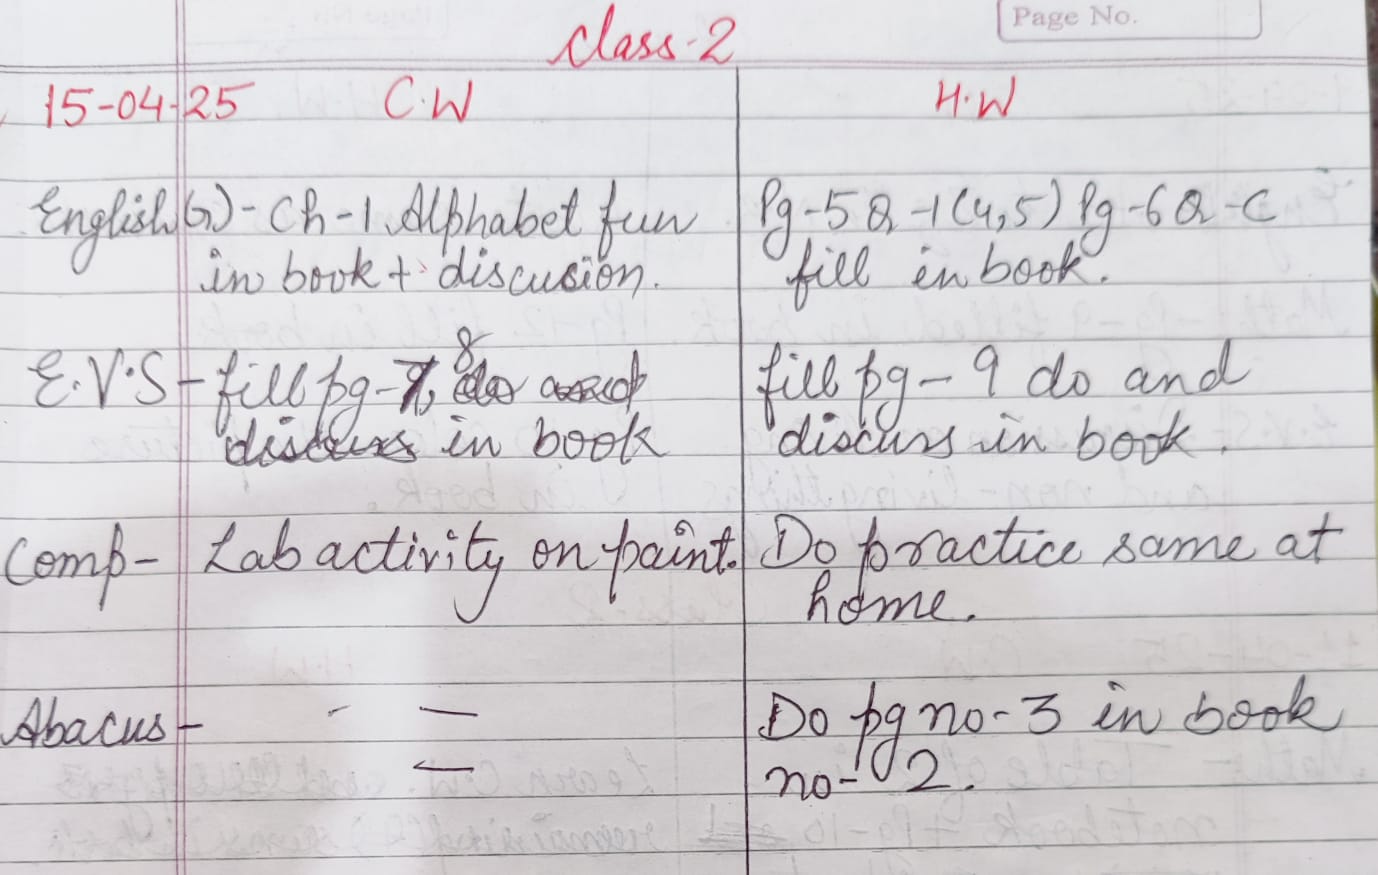 Page No.
Class-2
15-04-25 C.W H.W
English(G)-Ch-1 Alphabet fun Pg-5 Q-1(4,5) Pg-6 Q-C
in book + discusion. fill in book.
8
E.V.S-fill pg-7, do and fill pg-9 do and
discuss in book discuss in book.
Comp- Lab activity on paint. Do practice same at
home.
Abacus- - — Do pg no-3 in book
— no-2.